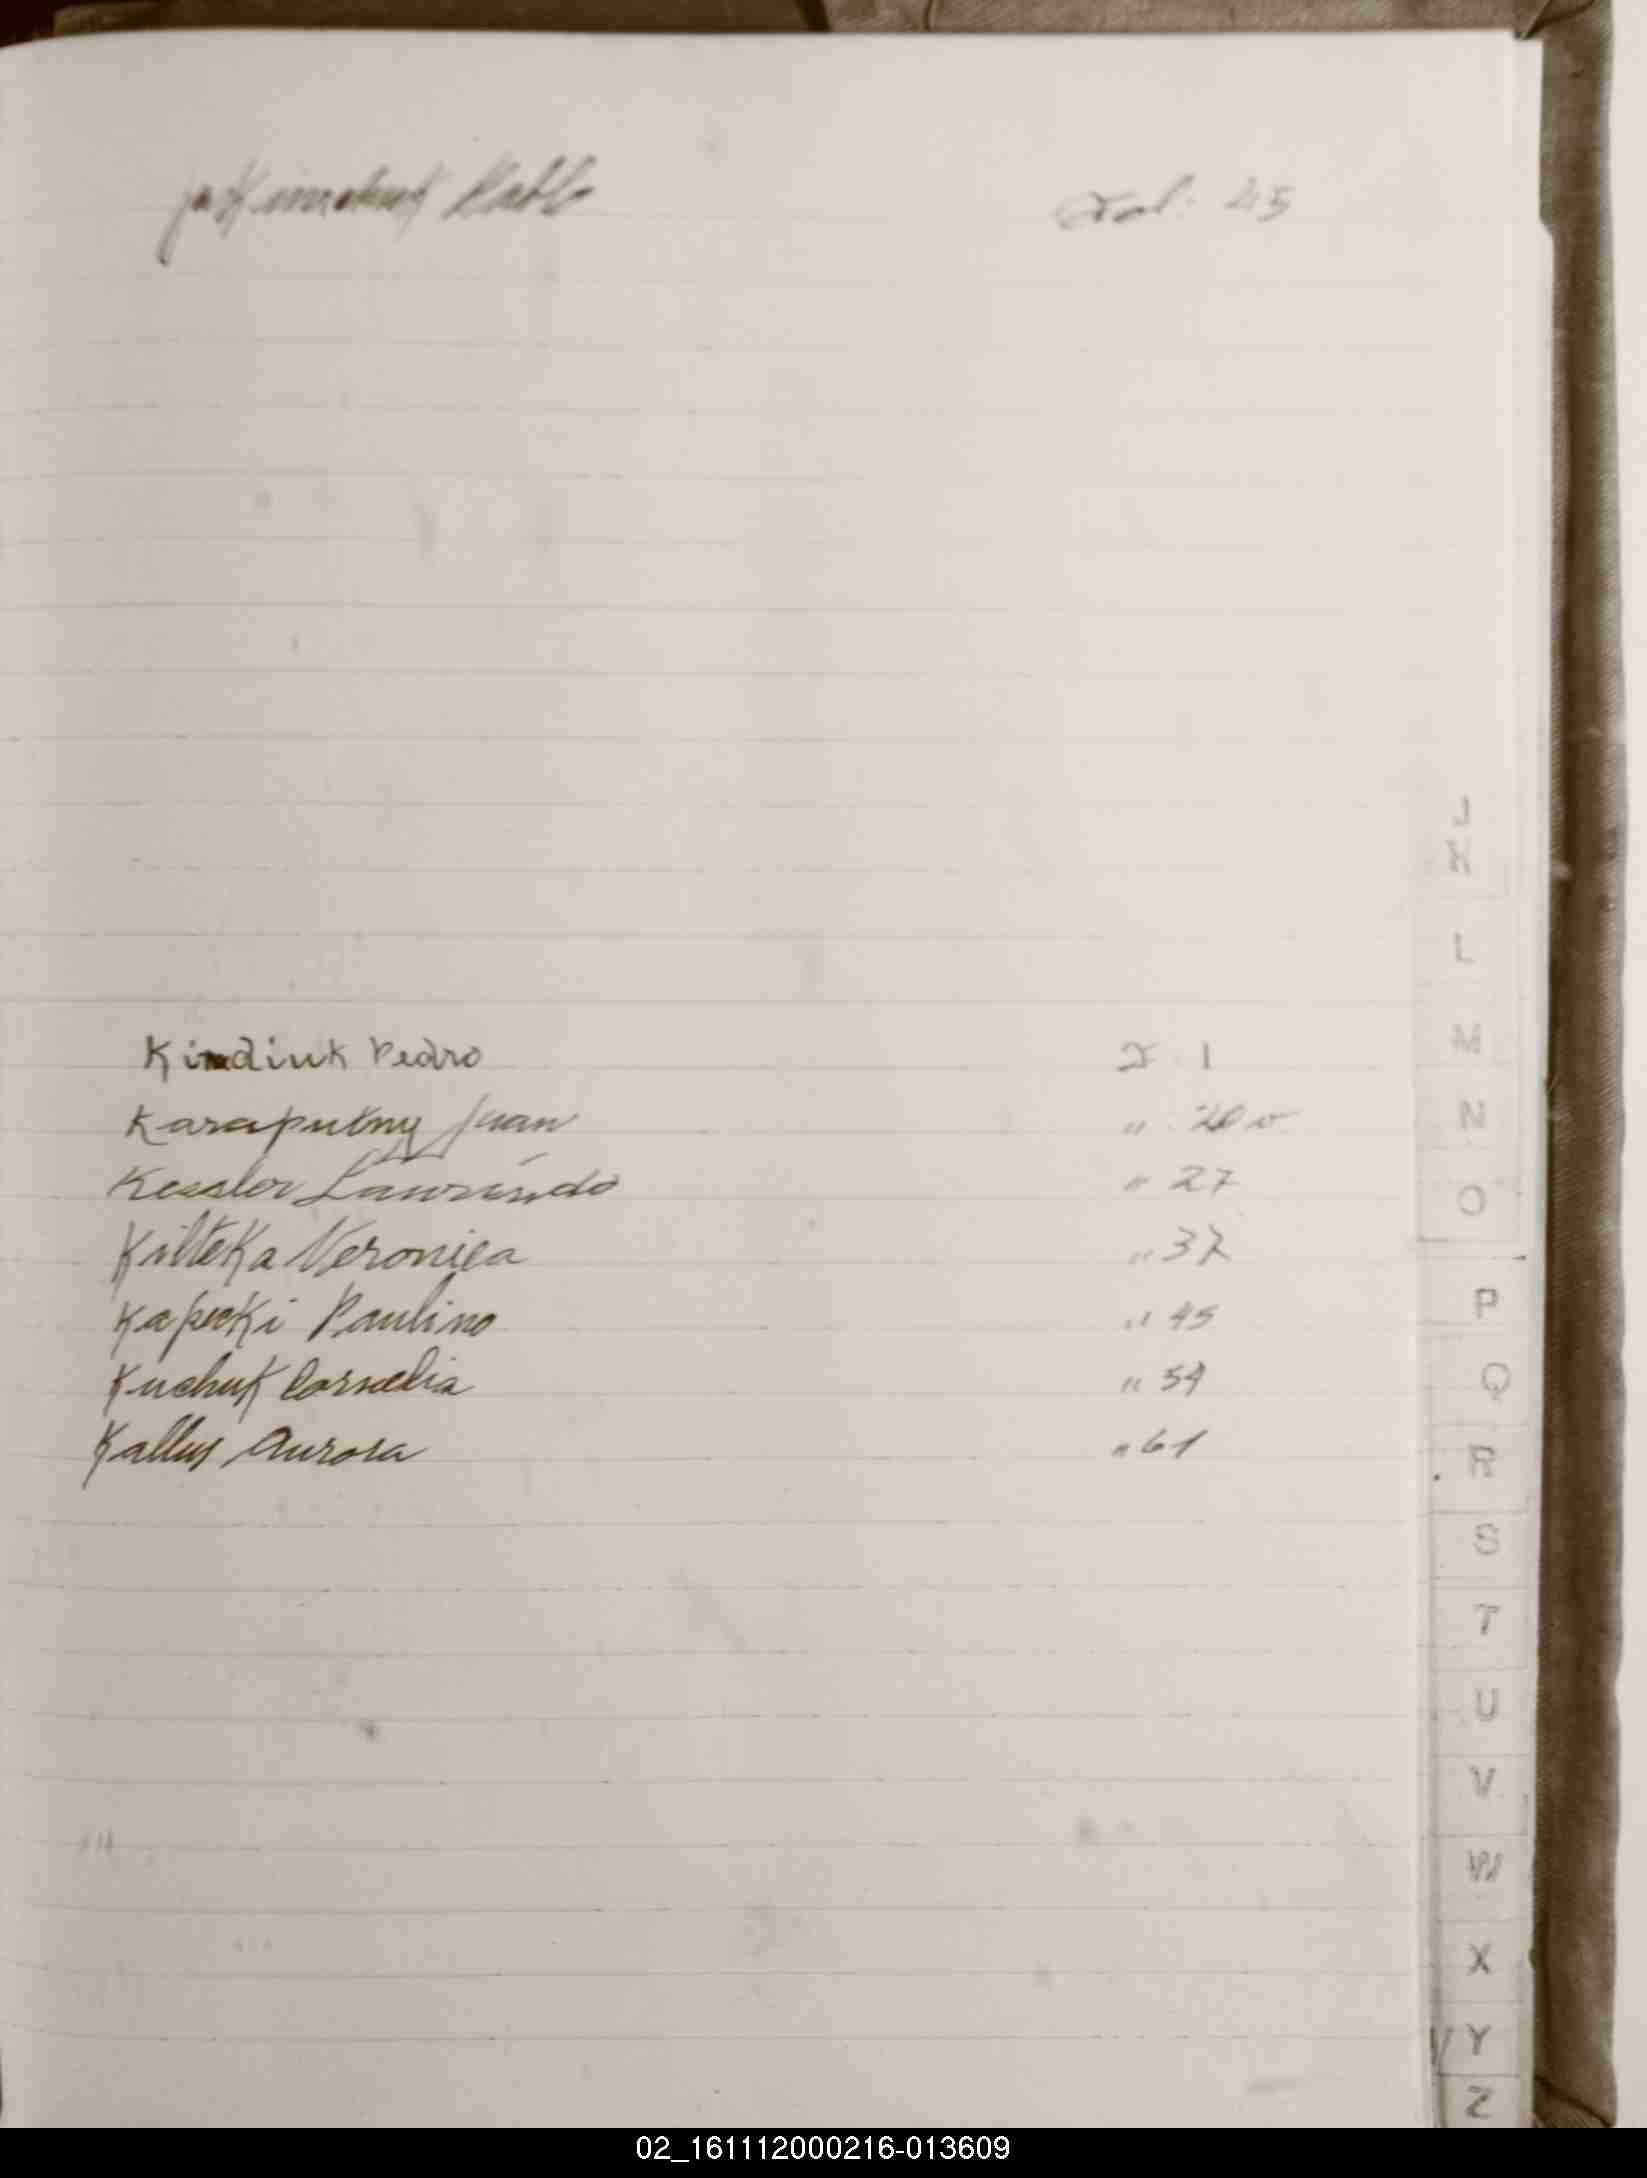 Fol. 45
J
K
L
M
Kindiuk Pedro F. 1
N
Karaputny Juan " 20 v.
Kessler Laurindo " 27
O
Kilteka Veronica " 37
Kapecki Paulino " 45
P
Kuchuk Cornelia " 54
Q
Kallus Aurora " 61
R
S
T
U
V
W
X
Y
Z
02_161112000216-013609